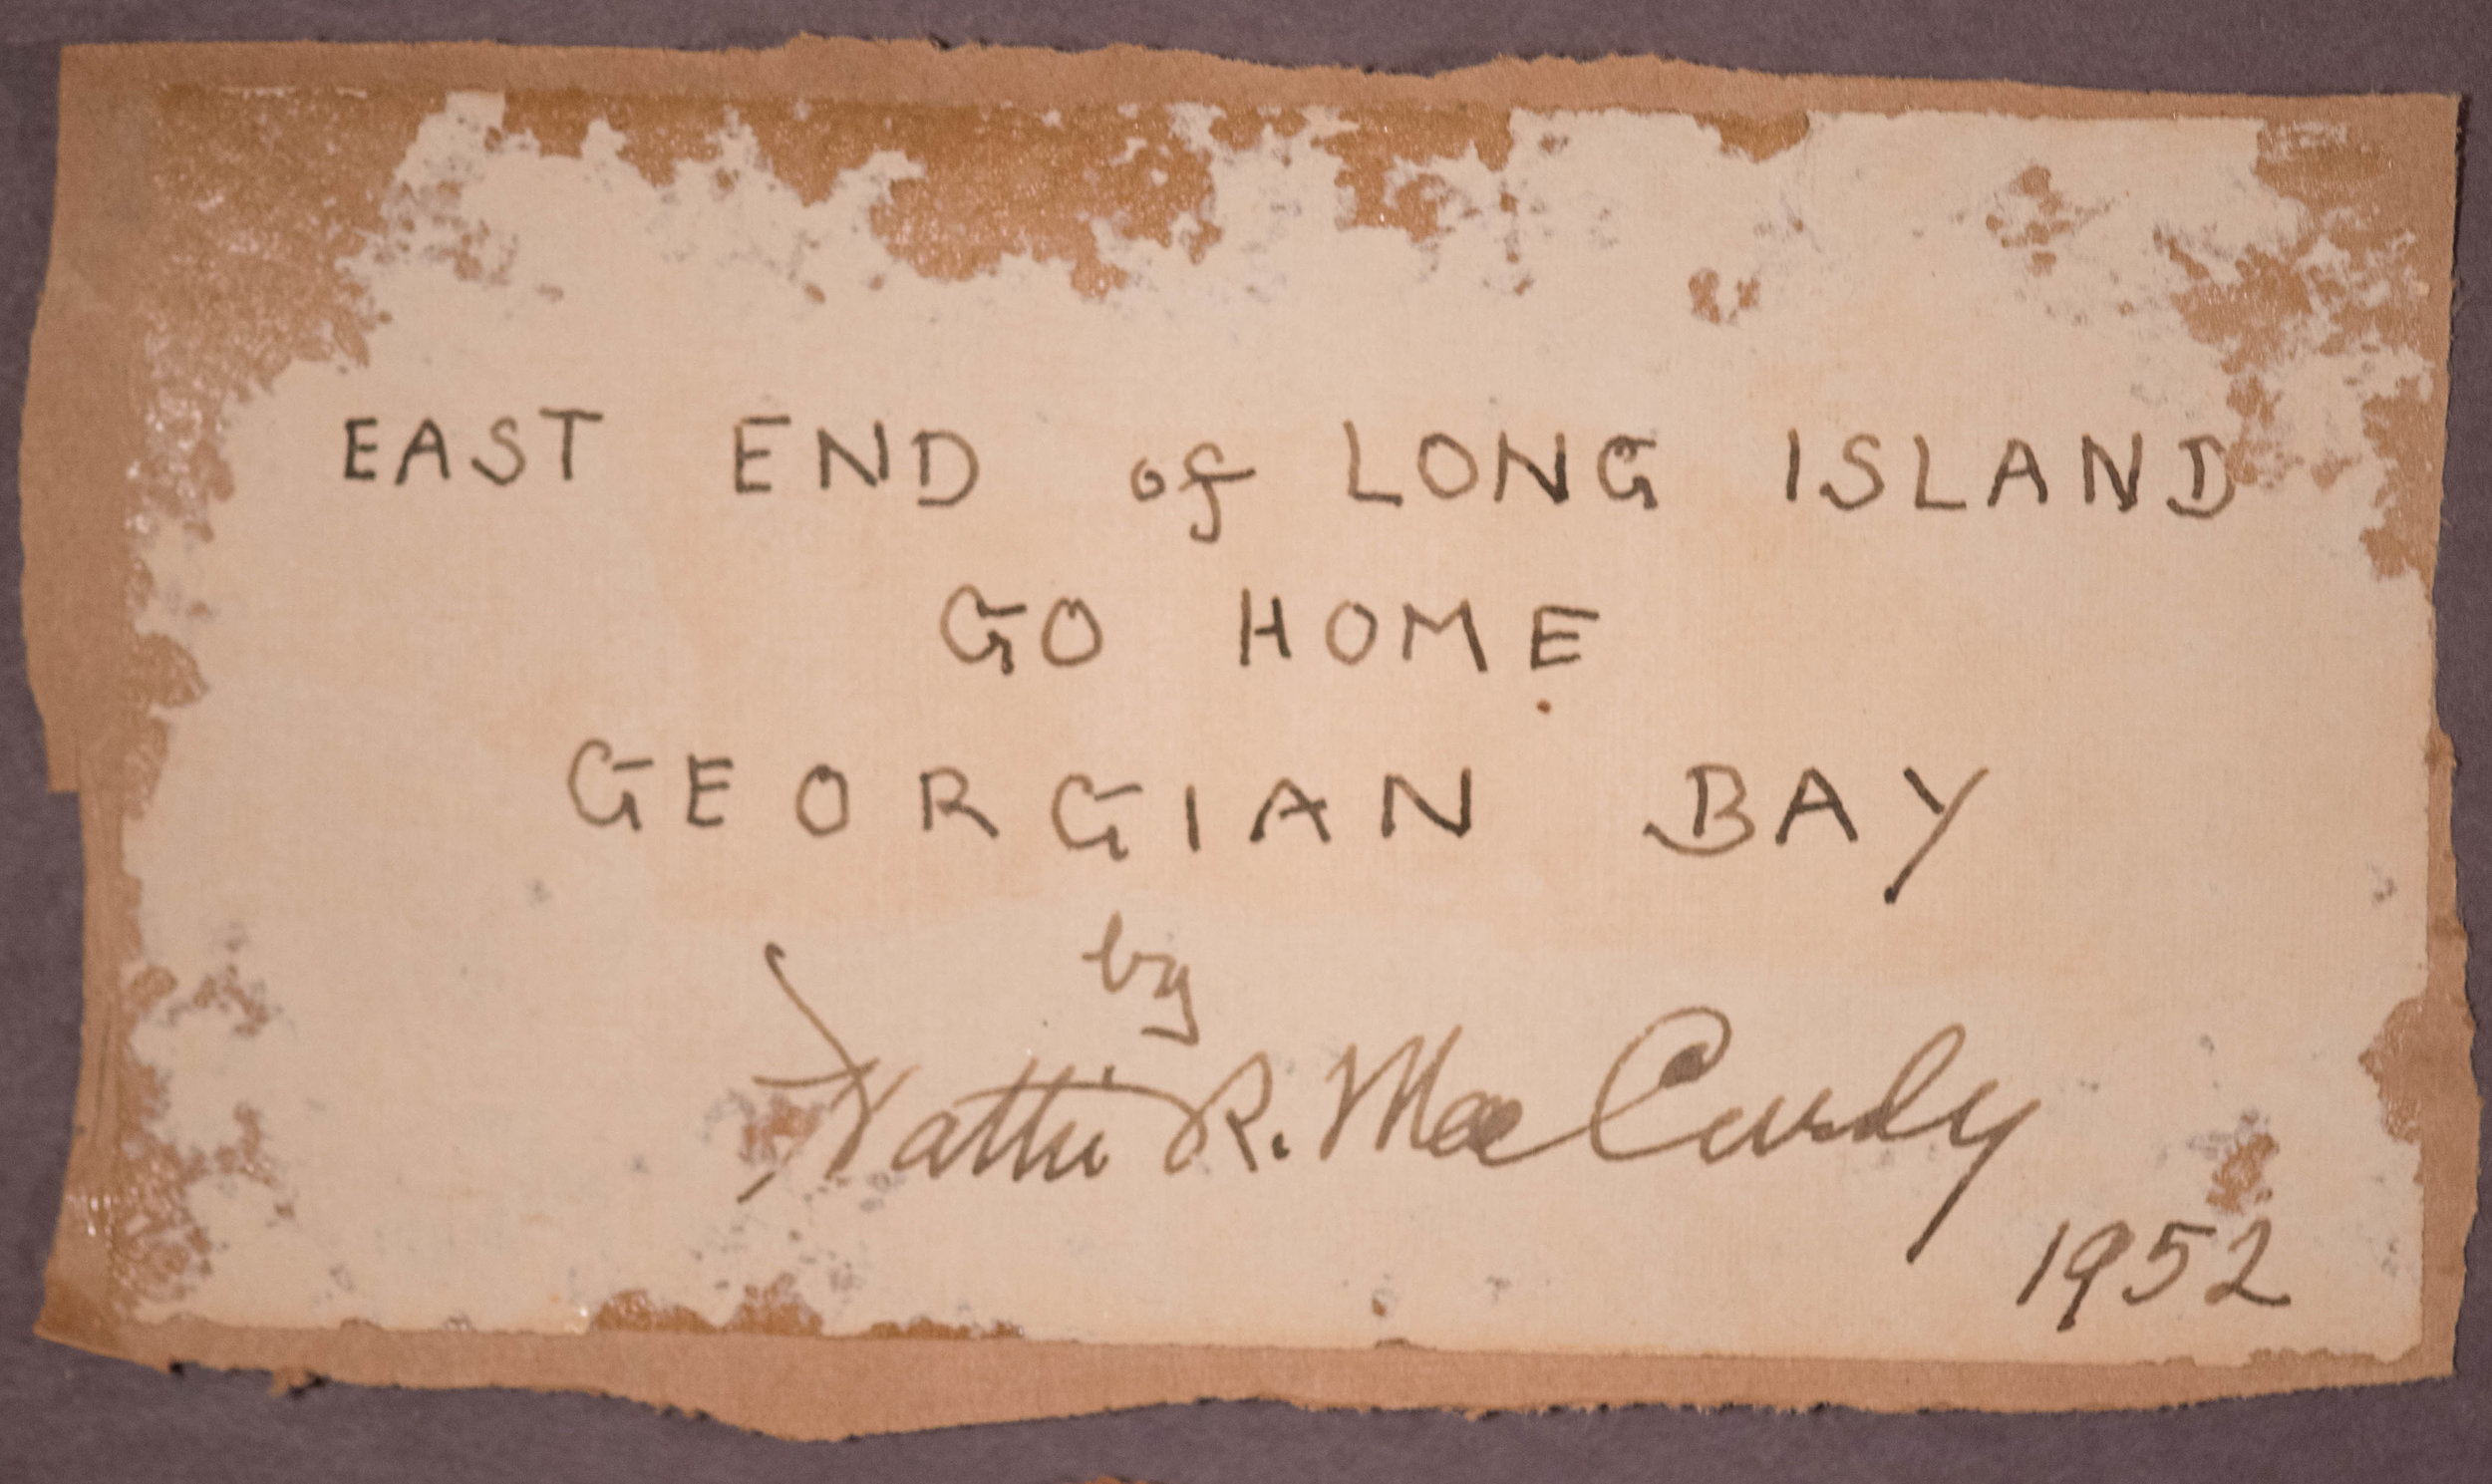 EAST END of LONG ISLAND
GO HOME
GEORGIAN BAY
by
Hattie R. MacCurdy
1952